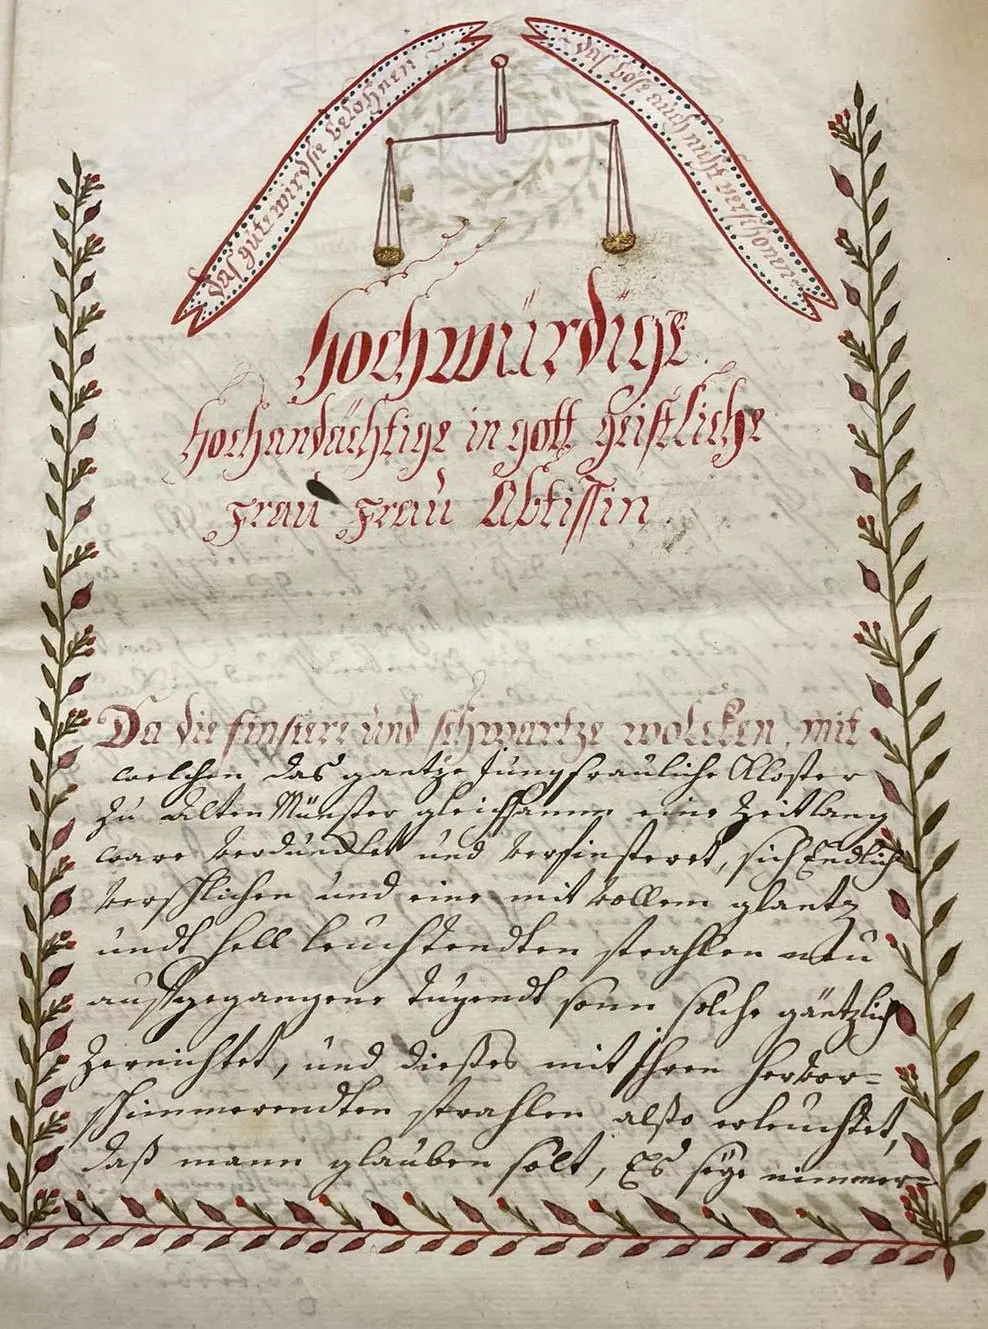 das gute wird sie belohnen
das böse auch nicht verschonen
Hochwürdige
hochandächtige in gott geistliche
frau frau Abtissin
Da die finstere und schwartze wolcken, mit
welchen das gantze Jungfrauliche Kloster
zu Alten Münster gleichsamm eine Zeitlang
ware verduncklet und verfinsteret, sich Endlich
verschlichen und eine mit vollem glantz
undt hell leuchtendten strahlen neu
aufgegangene tugendt sonn solche gäntzlich
zernichtet, und dießes mit Ihren hervor=
schimmerendten strahlen alßo erleuchtet,
daß mann glauben solt, Es seye nimmer=